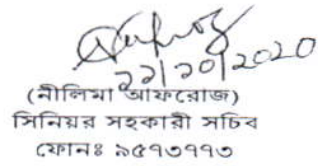 ২২/১০/২০২০
(নীলিমা আফরোজ)
সিনিয়র সহকারী সচিব
ফোনঃ ৯৫৭৩৭৭৩